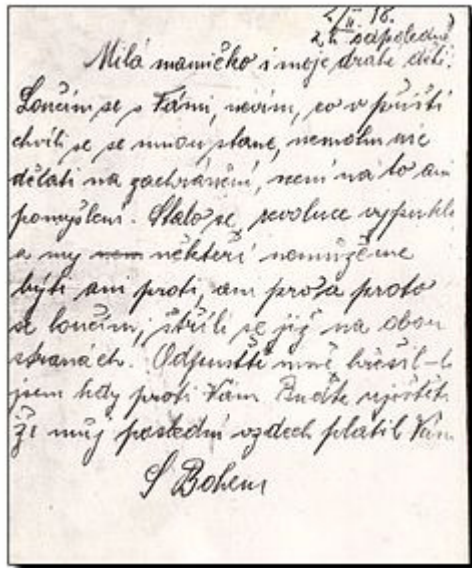 2/II. 18.
2 h odpoledne
Milá mamičko i moje drahé děti.
Loučím se s Vámi, nevím, co v příští
chvíli se se mnou stane, nemohu nic
dělati na zachránění, není na to ani
pomyšlení. Stalo se, revoluce vypukla
a my některí nemůžeme
býti ani proti, ani pro a proto
se loučím, střílí se již na obou
stranách. Odpusťte mně hřešil-li
jsem kdy proti Vám Buďte ujištěni
že můj poslední vzdech platil Vám
S Bohem